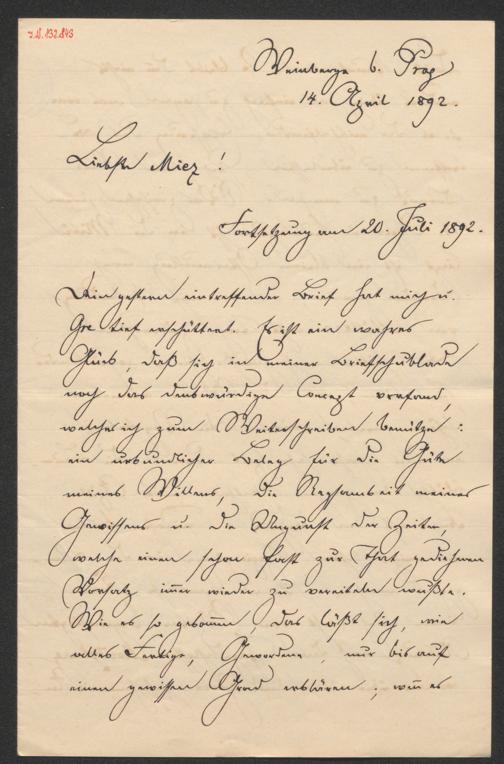 I.N. 132.843
Weinberge b. Prag
14. April 1892.
Liebste Miez!
Fortsetzung am 20. Juli 1892.
Dein gestern eintreffender Brief hat mich u.
Gre tief erschüttert. Es ist ein wahres
Glück, daß sich in meiner Briefschublade
noch das denkwürdige Concept vorfand,
welches ich zum Weiterschreiben benütze:
ein urkundlicher Beleg für die Güte
meines Willens, die Regsamkeit meines
Gewissens u. die Ungunst der Zeiten,
welche einen schon fast zur That gediehenen
Vorsatz immer wieder zu vereiteln wußte.
Wie es so gekommen, das läßt sich, wie
alles Fertige, Gewordene, nur bis auf
einen gewissen Grad erklären; wenn es